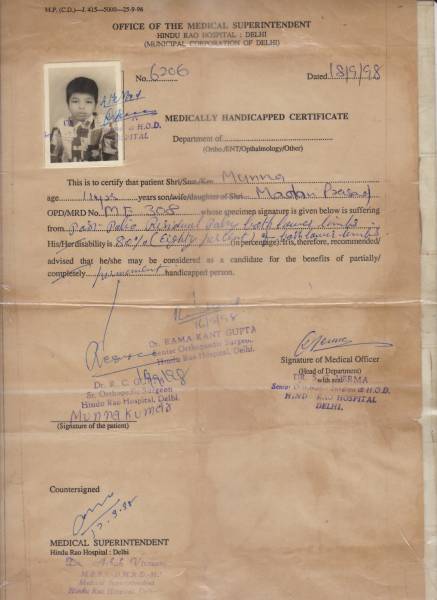 M.P. (C.D.)—J. 415—5000—25-9-96
OFFICE OF THE MEDICAL SUPERINTENDENT
HINDU RAO HOSPITAL : DELHI
(MUNICIPAL CORPORATION OF DELHI)
No. 6206 Dated 18/9/98
Attested
H.O.D.
HOSPITAL
MEDICALLY HANDICAPPED CERTIFICATE
Department of
(Ortho/ENT/Opthalmology/Other)
This is to certify that patient Shri/Smt/Km Munna
age 11 yrs years son/wife/daughter of Shri Madan Prasad
OPD/MRD No. ME 308 whose specimen signature is given below is suffering
from Post-Polio Residual Palsy both lower limbs
His/Her disability is 80% (Eighty percent) (in percentage). It is, therefore, recommended/ both lower limbs
advised that he/she may be considered as a candidate for the benefits of partially/
completely permanent handicapped person.
16/9/98
Dr. RAMA KANT GUPTA
Senior Orthopaedic Surgeon
Hindu Rao Hospital, Delhi.
Dr. R. C.
Sr. Orthopedic Surgeon
Hindu Rao Hospital, Delhi
Munna Kumar
(Signature of the patient)
Signature of Medical Officer
(Head of Department)
with seal
VERMA
H.O.D.
HINDU RAO HOSPITAL
DELHI.
Countersigned
MEDICAL SUPERINTENDENT
Hindu Rao Hospital : Delhi
Medical Superintendent
Hindu Rao Hospital, Delhi